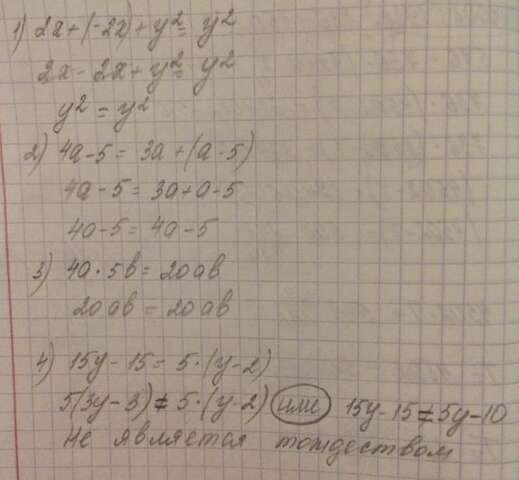 1) 2x+(-2x)+y²=y²
2x-2x+y²=y²
y²=y²
2) 4a-5=3a+(a-5)
4a-5=3a+a-5
4a-5=4a-5
3) 4a·5b=20ab
20ab=20ab
4) 15y-15=5·(y-2)
5(3y-3)≠5·(y-2) или 15y-15≠5y-10
Не является тождеством